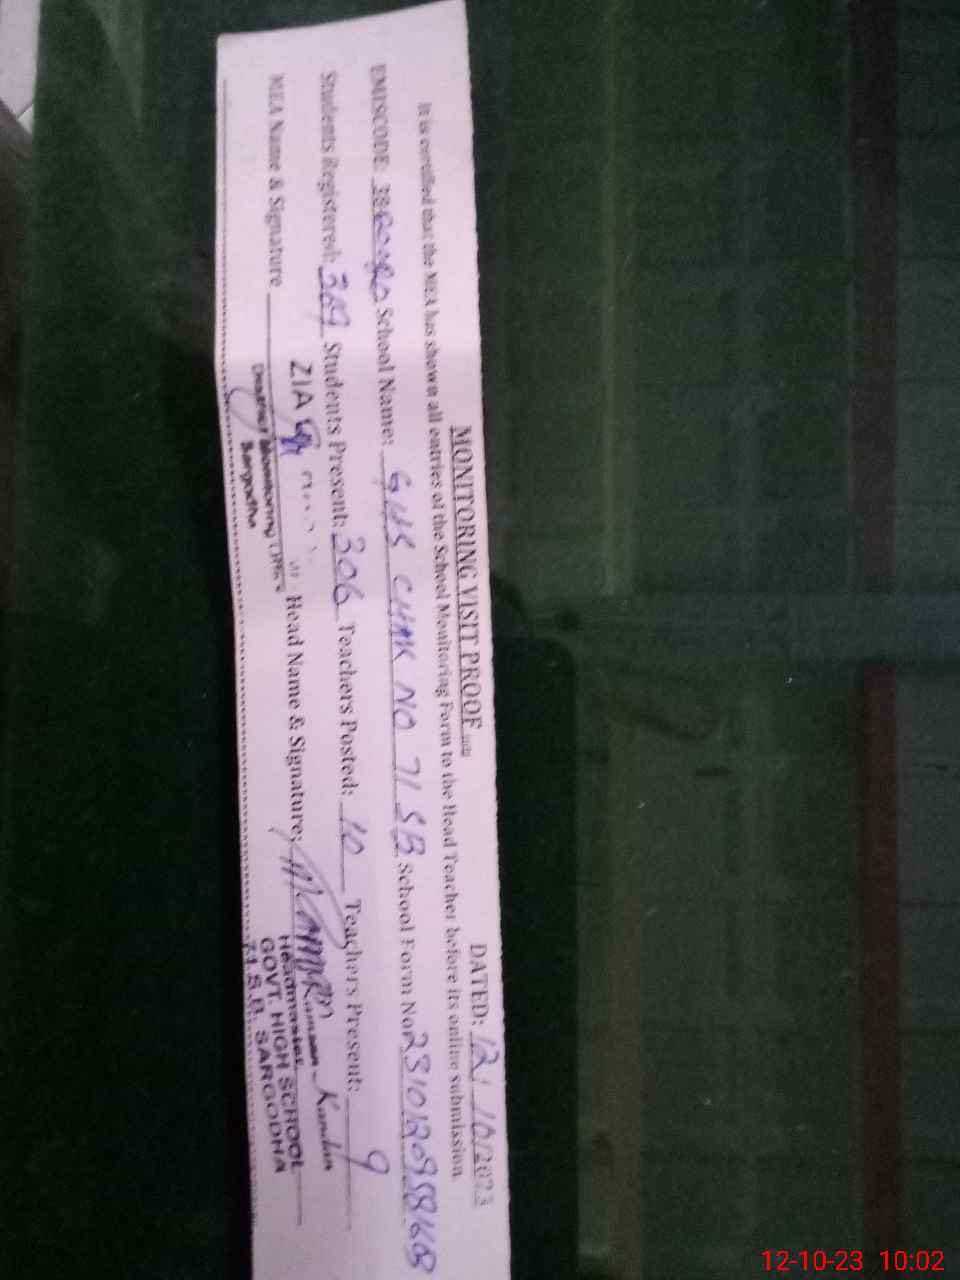 MONITORING VISIT PROOF
DATED: 12/10/2023
It is certified that the MEA has shown all entries of the School Monitoring Form to the Head Teacher before its online submission.
EMISCODE: School Name: GHS CHAK NO 71 SB School Form No:
Students Registered: 369 Students Present: 306 Teachers Posted: 10 Teachers Present: 9
MEA Name & Signature ZIA Head Name & Signature:
District Monitoring Officer
Sargodha
Headmaster
GOVT. HIGH SCHOOL
71.S.B. SARGODHA
12-10-23 10:02